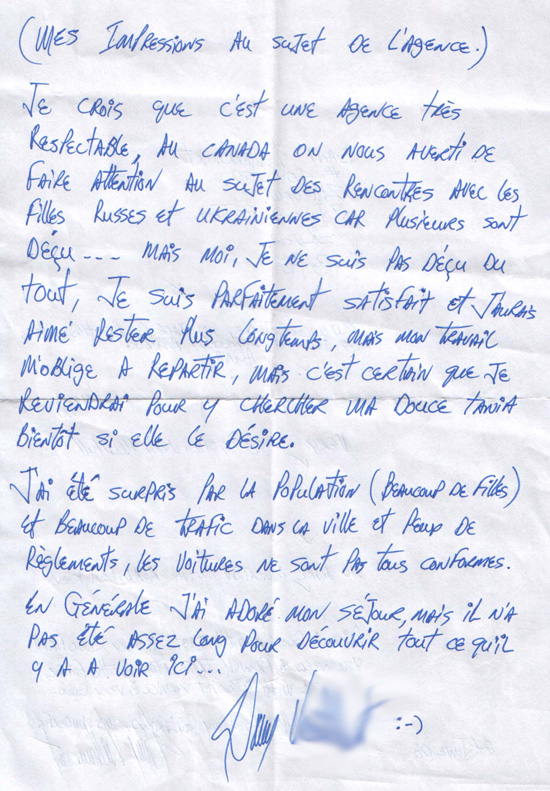 (Mes Impressions au sujet de l'agence.)
Je crois que c'est une agence très
respectable, au Canada on nous averti de
faire attention au sujet des rencontres avec les
filles Russes et Ukrainiennes car plusieurs sont
déçu --- mais moi, je ne suis pas déçu du
tout, je suis parfaitement satisfait et j'aurais
aimé rester plus longtemps, mais mon travail
m'oblige a repartir, mais c'est certain que je
reviendrai pour y chercher ma douce Tania
bientôt si elle le désire.
J'ai été surpris par la population (Beaucoup de filles)
et beaucoup de trafic dans la ville et peup de
règlements, les voitures ne sont pas tous conformes.
En générale j'ai adoré mon séjour, mais il n'a
pas été assez long pour découvrir tout ce qu'il
y a a voir ici...
:-)